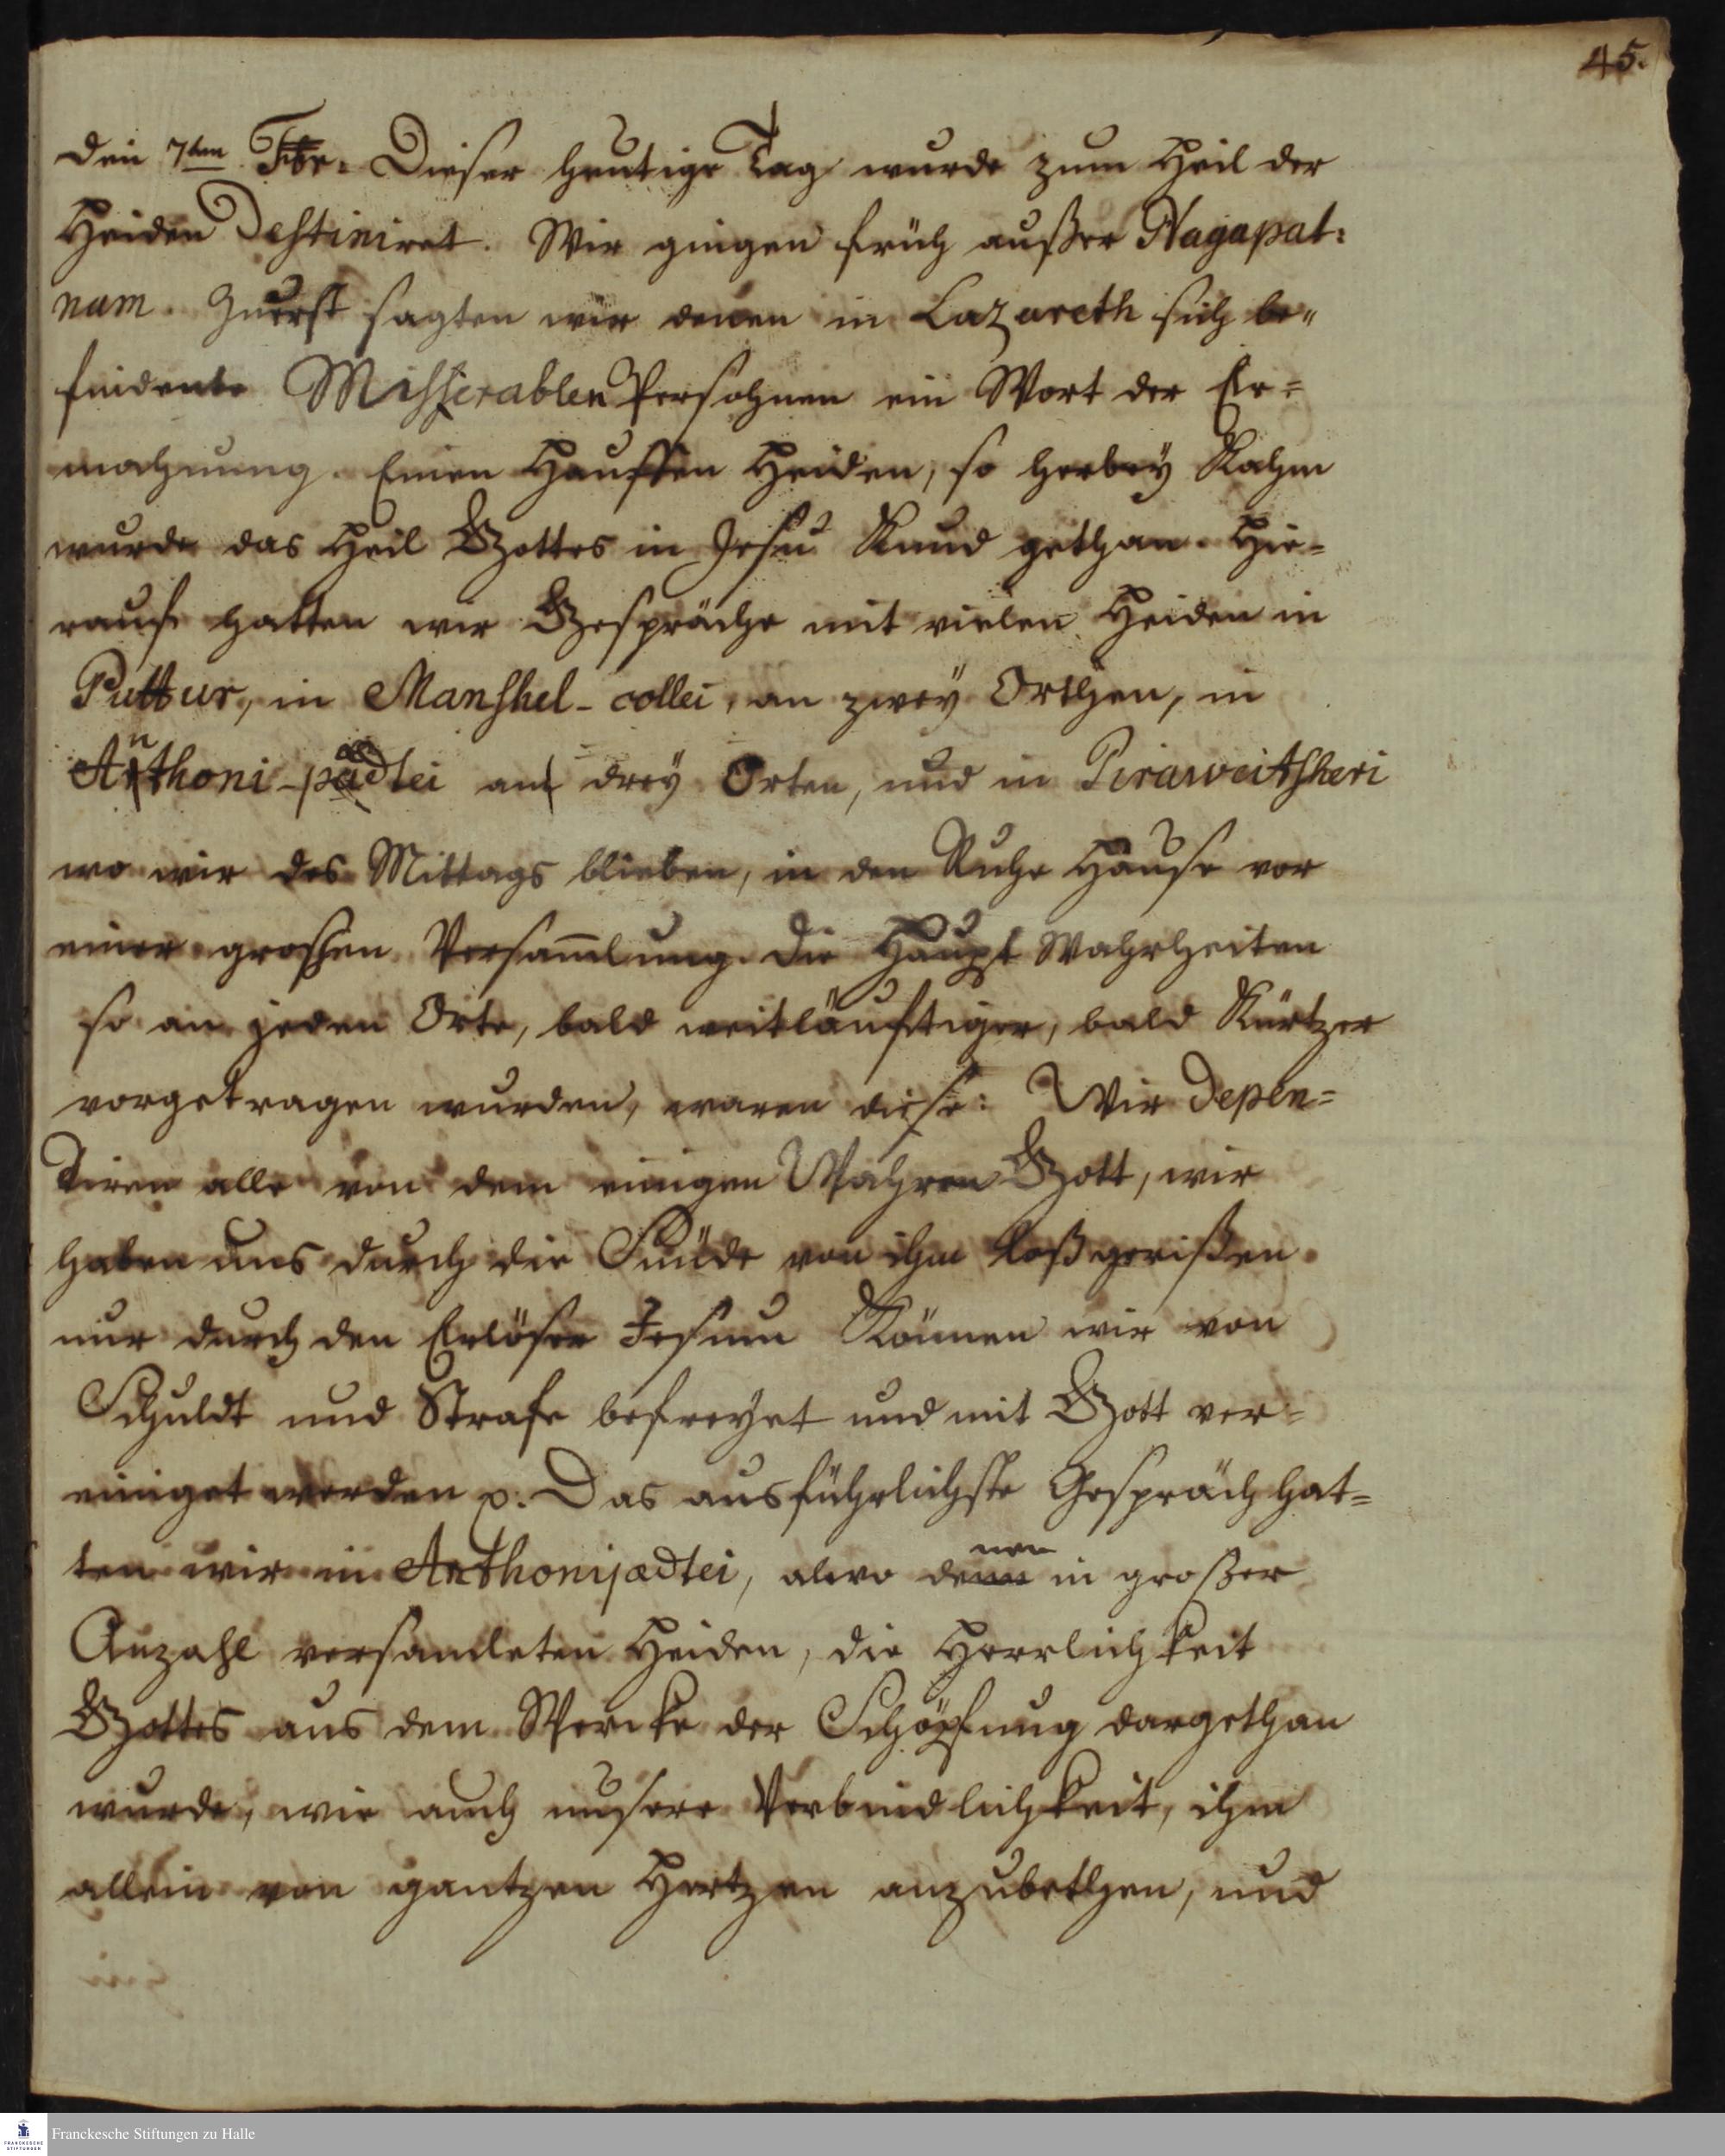 45.
den 7ten Febr. Dieser heutige Tag wurde zum Heil der
Heiden Destiniret. Wir gingen früh außer Nagapat=
nam. Zuerst sagten wir denen in Lazareth sich be„
findente Misserablen Persohnen ein Wort der Er=
mahnung. Einen Hauffen Heiden, so herbey Kahm
wurde das Heil Gottes in Jesu Kund gethan. Hie=
rauf hatten wir Gespräche mit vielen Heiden in
Puttur, in Manshel-collei, an zwey Orthen, in
Anthoni-pädtei an drey Orten, und in Piraweitsheri
wo wir des Mittags blieben, in den Ruhe Hause vor
einer grossen Versam̅lung. Die Haupt Wahrheiten
so an jeden Orte, bald weitläuftiger, bald Kürtzer
vorgetragen wurden, waren diese: Wir depen=
diren alle von dem einigen Wahren Gott, wir
haben uns durch die Sünde von ihm loßgerißen
nur durch den Erlöser Jesum Können wir von
Schuldt und Strafe befreyet und mit Gott ver=
einiget werden p. Das ausführlichste Gespräch hat=
ten wir in Anthonipædtei, alwo denen in großer
Anzahl versamleten Heiden, die Herrlichkeit
Gottes aus dem Wercke der Schöpfung dargethan
wurde, wie auch unsere Verbindlichkeit, ihm
allein von gantzen Hertzen anzubethen, und
Franckesche Stiftungen zu Halle
FRANCKESCHE
STIFTUNGEN